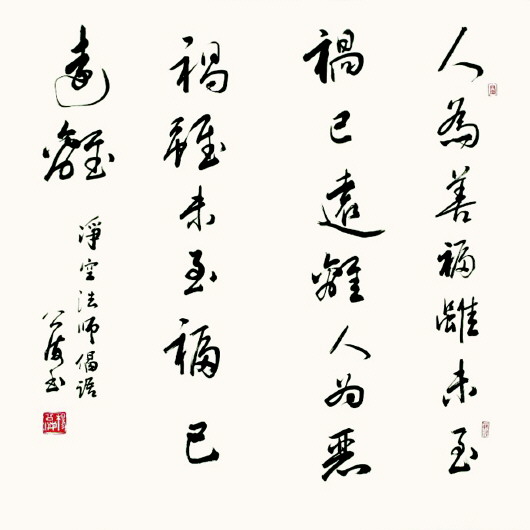 人為善福雖未至
禍已遠離人为惡
禍雖未至福已
遠離
淨空法師偈語